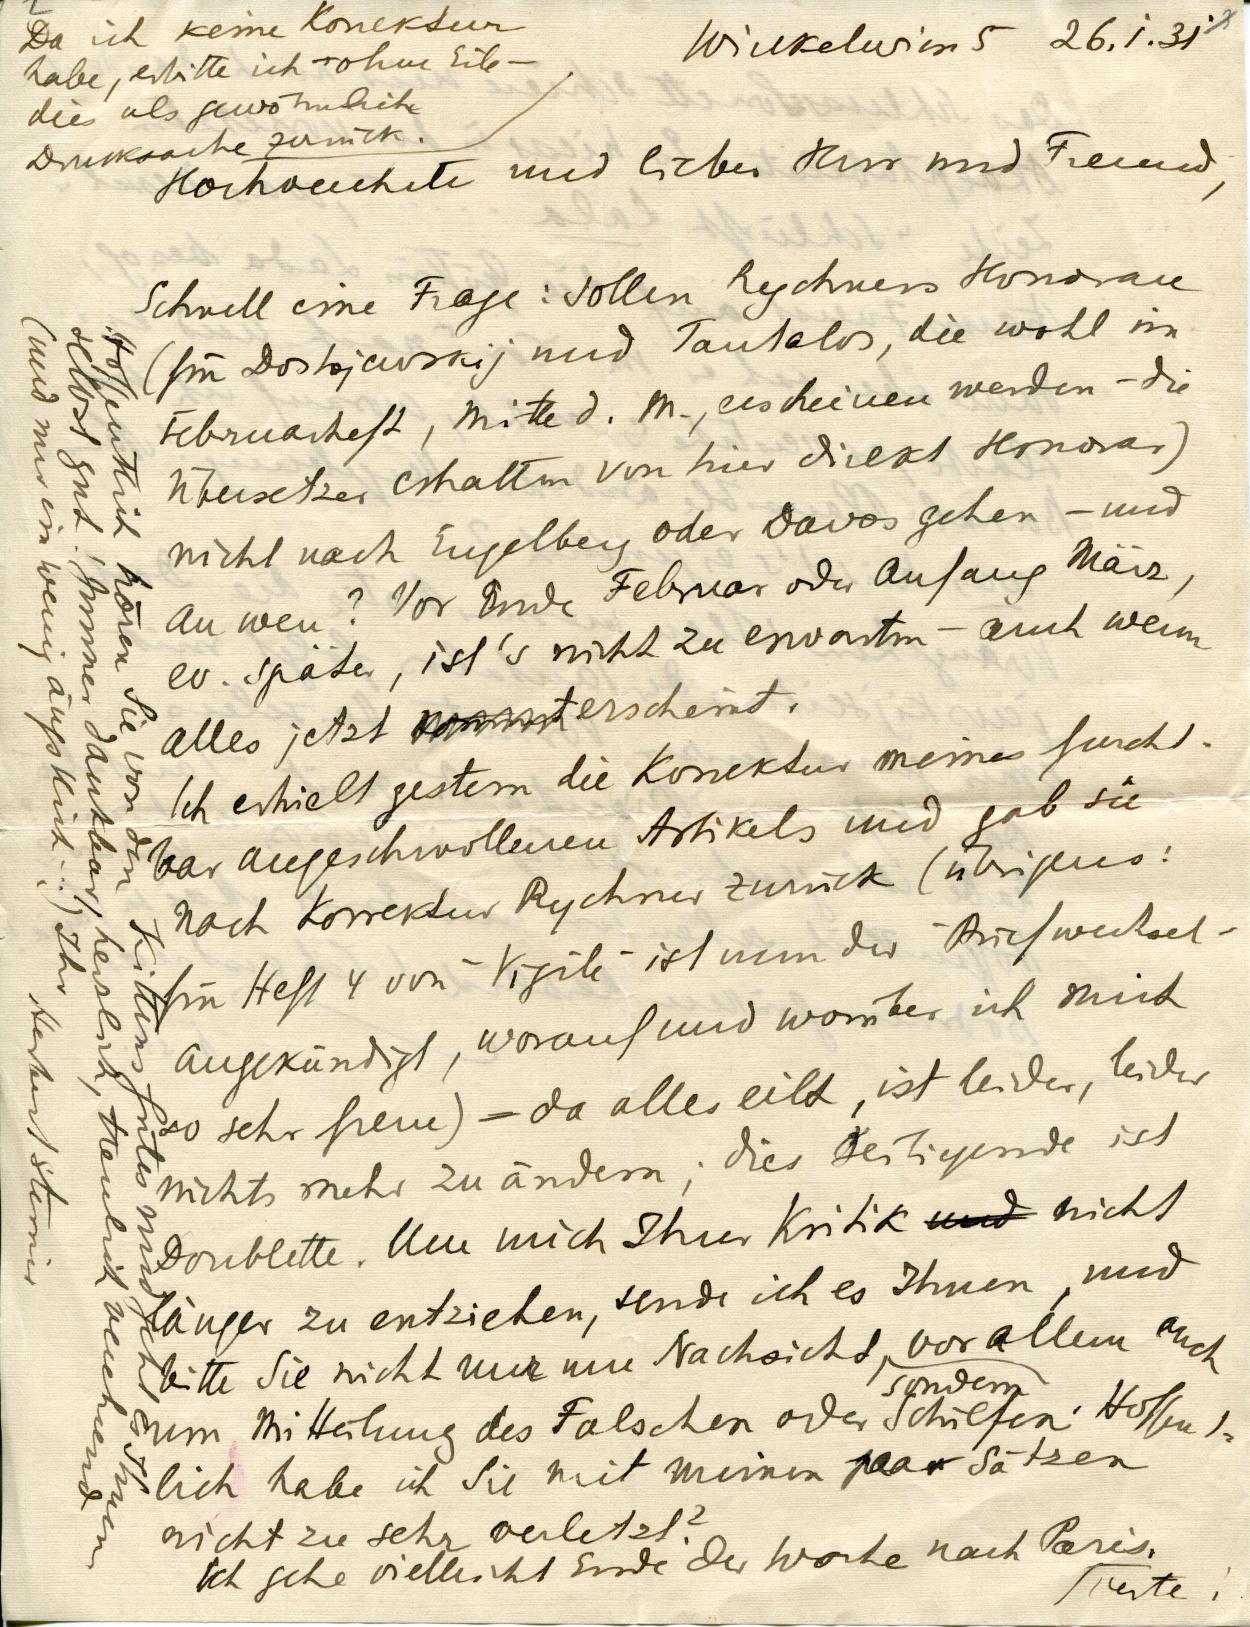 Da ich keine Korrektur
habe, erbitte ich – ohne Eile –
dies als gewöhnliche
Drucksache zurück.
Winkelwiese 5 26.I.31
Hochverehrter und lieber Herr und Freund,
Schnell eine Frage: sollen Rychners Honorare
(für Dostojewskij und Tantalos, die wohl im
Februarheft, Mitte d. M., erscheinen werden – die
Übersetzer erhalten von hier direkt Honorar)
nicht nach Engelberg oder Davos gehen – und
an wen? Vor Ende Februar oder Anfang März,
ev. später, ist's nicht zu erwarten – auch wenn
alles jetzt erscheint.
Ich erhielt gestern die Korrektur meines furcht-
bar angeschwollenen Artikels und gab sie
nach Korrektur Rychner zurück (übrigens:
für Heft 4 von "Vigile" ist nun der Briefwechsel
angekündigt, worauf und worüber ich mich
so sehr freue) – da alles eilt, ist leider, leider
nichts mehr zu ändern; dies Beiliegende ist
Doublette. Um mich Ihrer Kritik und nicht
länger zu entziehen, sende ich es Ihnen, und
bitte Sie nicht nur um Nachsicht, sondern vor allem auch
um Mitteilung des Falschen oder Schiefen. Hoffent-
lich habe ich Sie mit meinen paar Sätzen
nicht zu sehr verletzt?
Ich gehe vielleicht Ende der Woche nach Paris.
Hoffentlich hören Sie von den Kittens Gutes und geht es Ihnen
selbst gut. Immer dankbar, herzlich, treulich verehrend
(und nur ein wenig ängstlich...) Ihr Herbert Steiner